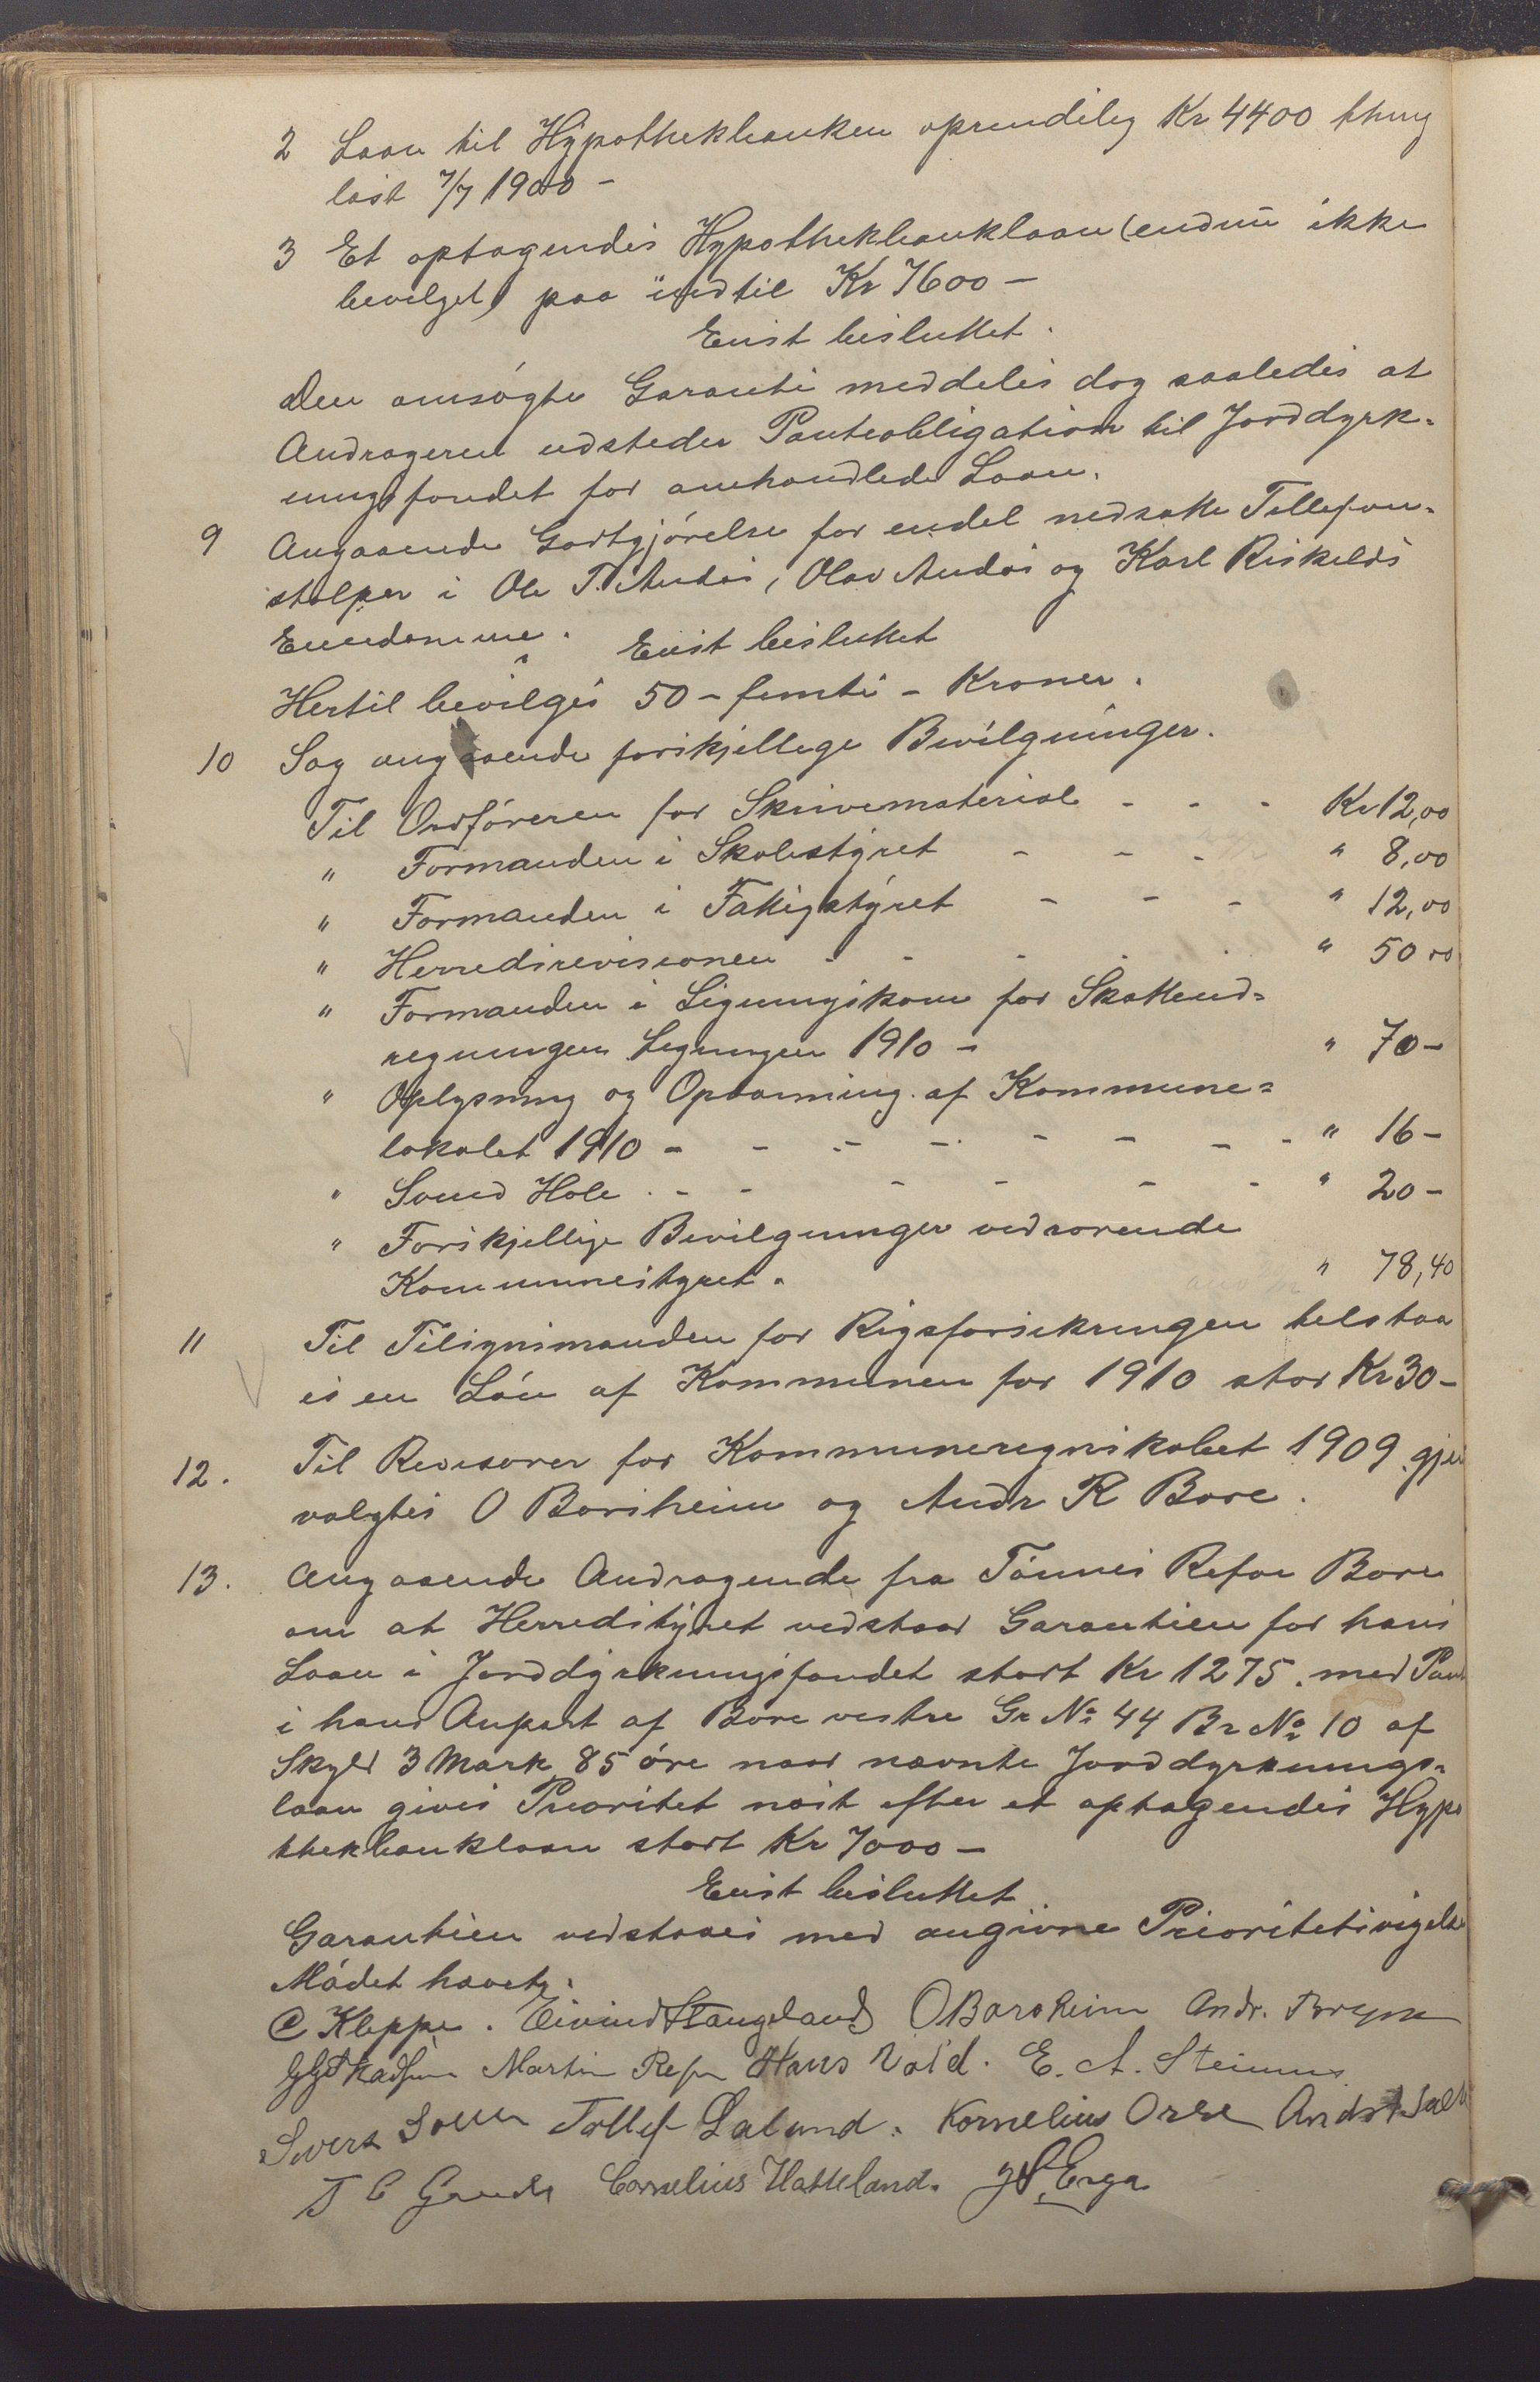 2 Laan til Hypothekbanken oprindelig Kr 4400 thing
läst 7/7 1900 -
3 Et optagendes Hypothekbanklaan (endnu ikke
bevilget) paa indtil Kr 7600 -
Enst besluttet.
Den ansögte Garanti meddeles dog saaledes at
Andrageren udsteder Panteobligation til Jorddyrk-
ningsfondet for omhandlede Laan.
9 Angaaende Godtgjörelse for endel nedsatte Tellefon-
stolper i Ole T. Anda's, Olav Anda's og Karl Riskeld's
Eiendomme.
Enst besluttet
Hertil bevilges 50 - femti - Kroner.
10 Sag angaaende forskjellege Bevilgninger.
Til Ordföreren for Skrivematerial - - - Kr 12,00
" Formanden i Skolestyret - - - " 8,00
" Formanden i Fattigstyret - - - " 12,00
" Herredsrevisionen - - - - - " 50 00
" Formanden i Ligningskom for Skatteud-
regningen Ligningen 1910 - " 70 -
" Oplysning og Opvarming af Kommune-
lokalet 1910 - - - - - - - - " 16 -
" Svend Hole - - - - - - " 20 -
" Forskjellige Bevilgninger vedrorende
Kommunestyret. " 78,40
11 Til Tilsynsmanden for Rigsforsikringen tilstaa
es en Lön af Kommunen for 1910 stor Kr 30 -
12. Til Revisorer for Kommuneregnskabet 1909 gjen
valgtes O Borsheim og Andr R Bore.
13. Angaaende Andragende fra Tönnes Refve Bore
om at Herredstyret vedstaar Garantien for hans
Laan i Jorddyrkningsfondet stort Kr 1275. med Pant
i hans Anpart af Bore vestre Gr No 44 Br No 10 af
Skyld 3 Mark 85 öre naar nævnte Jorddyrknings-
laan gives Prioritet næst efter et optagendes Hypo
thekbanklaan stort Kr 7000 -
Enst besluttet
Garantien vedstaaes med angivne Prioritetsvigelse
Mödet hævet.
C Kleppe. Eivind Stangeland O Borsheim Andr. Bryne
Martin Hans Vold. E. A.
Tollef Salund. Kornelius Orre Andr
T C Grude Cornelius Hatteland. Erga